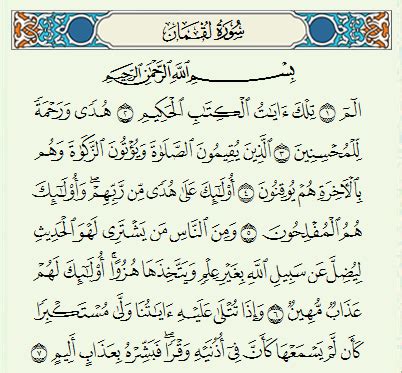 سُورَةُ لُقْمَانَ
بِسْمِ ٱللَّهِ ٱلرَّحْمَٰنِ ٱلرَّحِيمِ
الٓمٓ ١ تِلْكَ ءَايَٰتُ ٱلْكِتَٰبِ ٱلْحَكِيمِ ٢ هُدًى وَرَحْمَةً
لِّلْمُحْسِنِينَ ٣ ٱلَّذِينَ يُقِيمُونَ ٱلصَّلَوٰةَ وَيُؤْتُونَ ٱلزَّكَوٰةَ وَهُم
بِٱلْءَاخِرَةِ هُمْ يُوقِنُونَ ٤ أُو۟لَٰٓئِكَ عَلَىٰ هُدًى مِّن رَّبِّهِمْ ۖ وَأُو۟لَٰٓئِكَ
هُمُ ٱلْمُفْلِحُونَ ٥ وَمِنَ ٱلنَّاسِ مَن يَشْتَرِى لَهْوَ ٱلْحَدِيثِ
لِيُضِلَّ عَن سَبِيلِ ٱللَّهِ بِغَيْرِ عِلْمٍ وَيَتَّخِذَهَا هُزُوًا ۚ أُو۟لَٰٓئِكَ لَهُمْ
عَذَابٌ مُّهِينٌ ٦ وَإِذَا تُتْلَىٰ عَلَيْهِ ءَايَٰتُنَا وَلَّىٰ مُسْتَكْبِرًا
كَأَن لَّمْ يَسْمَعْهَا كَأَنَّ فِىٓ أُذُنَيْهِ وَقْرًا ۖ فَبَشِّرْهُ بِعَذَابٍ أَلِيمٍ ٧